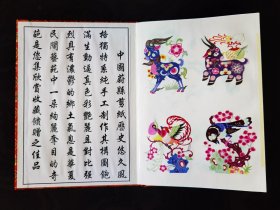 中國蔚縣剪紙歷史悠久風
格獨特系純手工制作其構圖飽
滿生動逼真色彩艷麗且對比强
烈具有濃鬱的鄉土氣息是華夏
民間藝苑中一朵絢麗奪目的奇
葩是您集欣賞收藏饋贈之佳品